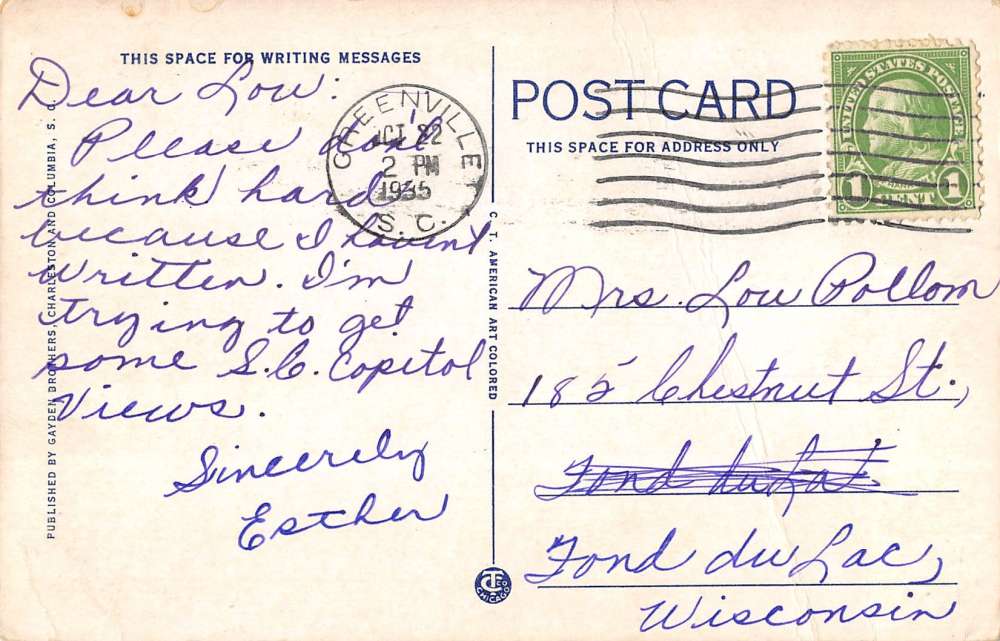 THIS SPACE FOR WRITING MESSAGES
Dear Lou:
Please don't
think hard
because I haven't
written. I'm
trying to get
some S.C. Capitol
Views.
Sincerely
Esther
PUBLISHED BY GAYDEN BROTHERS, CHARLESTON AND COLUMBIA, S. C.
GREENVILLE
OCT 22
2 PM
1935
S. C.
C. T. AMERICAN ART COLORED
CHICAGO
POST CARD
THIS SPACE FOR ADDRESS ONLY
UNITED STATES POSTAGE
1 CENT 1
Mrs. Lou Pollom
185 Chestnut St.,
Fond du Lac,
Wisconsin